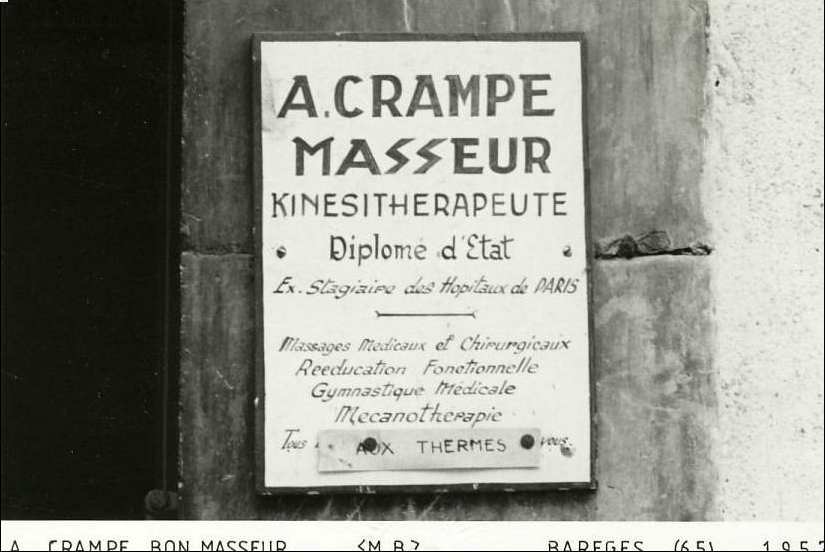 A. CRAMPE
MASSEUR
KINESITHERAPEUTE
Diplomé d'Etat
Ex. Stagiaire des Hopitaux de PARIS
Massages Medicaux et Chirurgicaux
Reeducation Fonctionnelle
Gymnastique Médicale
Mecanotherapie
Tous AUX THERMES vous.
A. CRAMPE BON MASSEUR <M.B> BAREGES (65) 1957